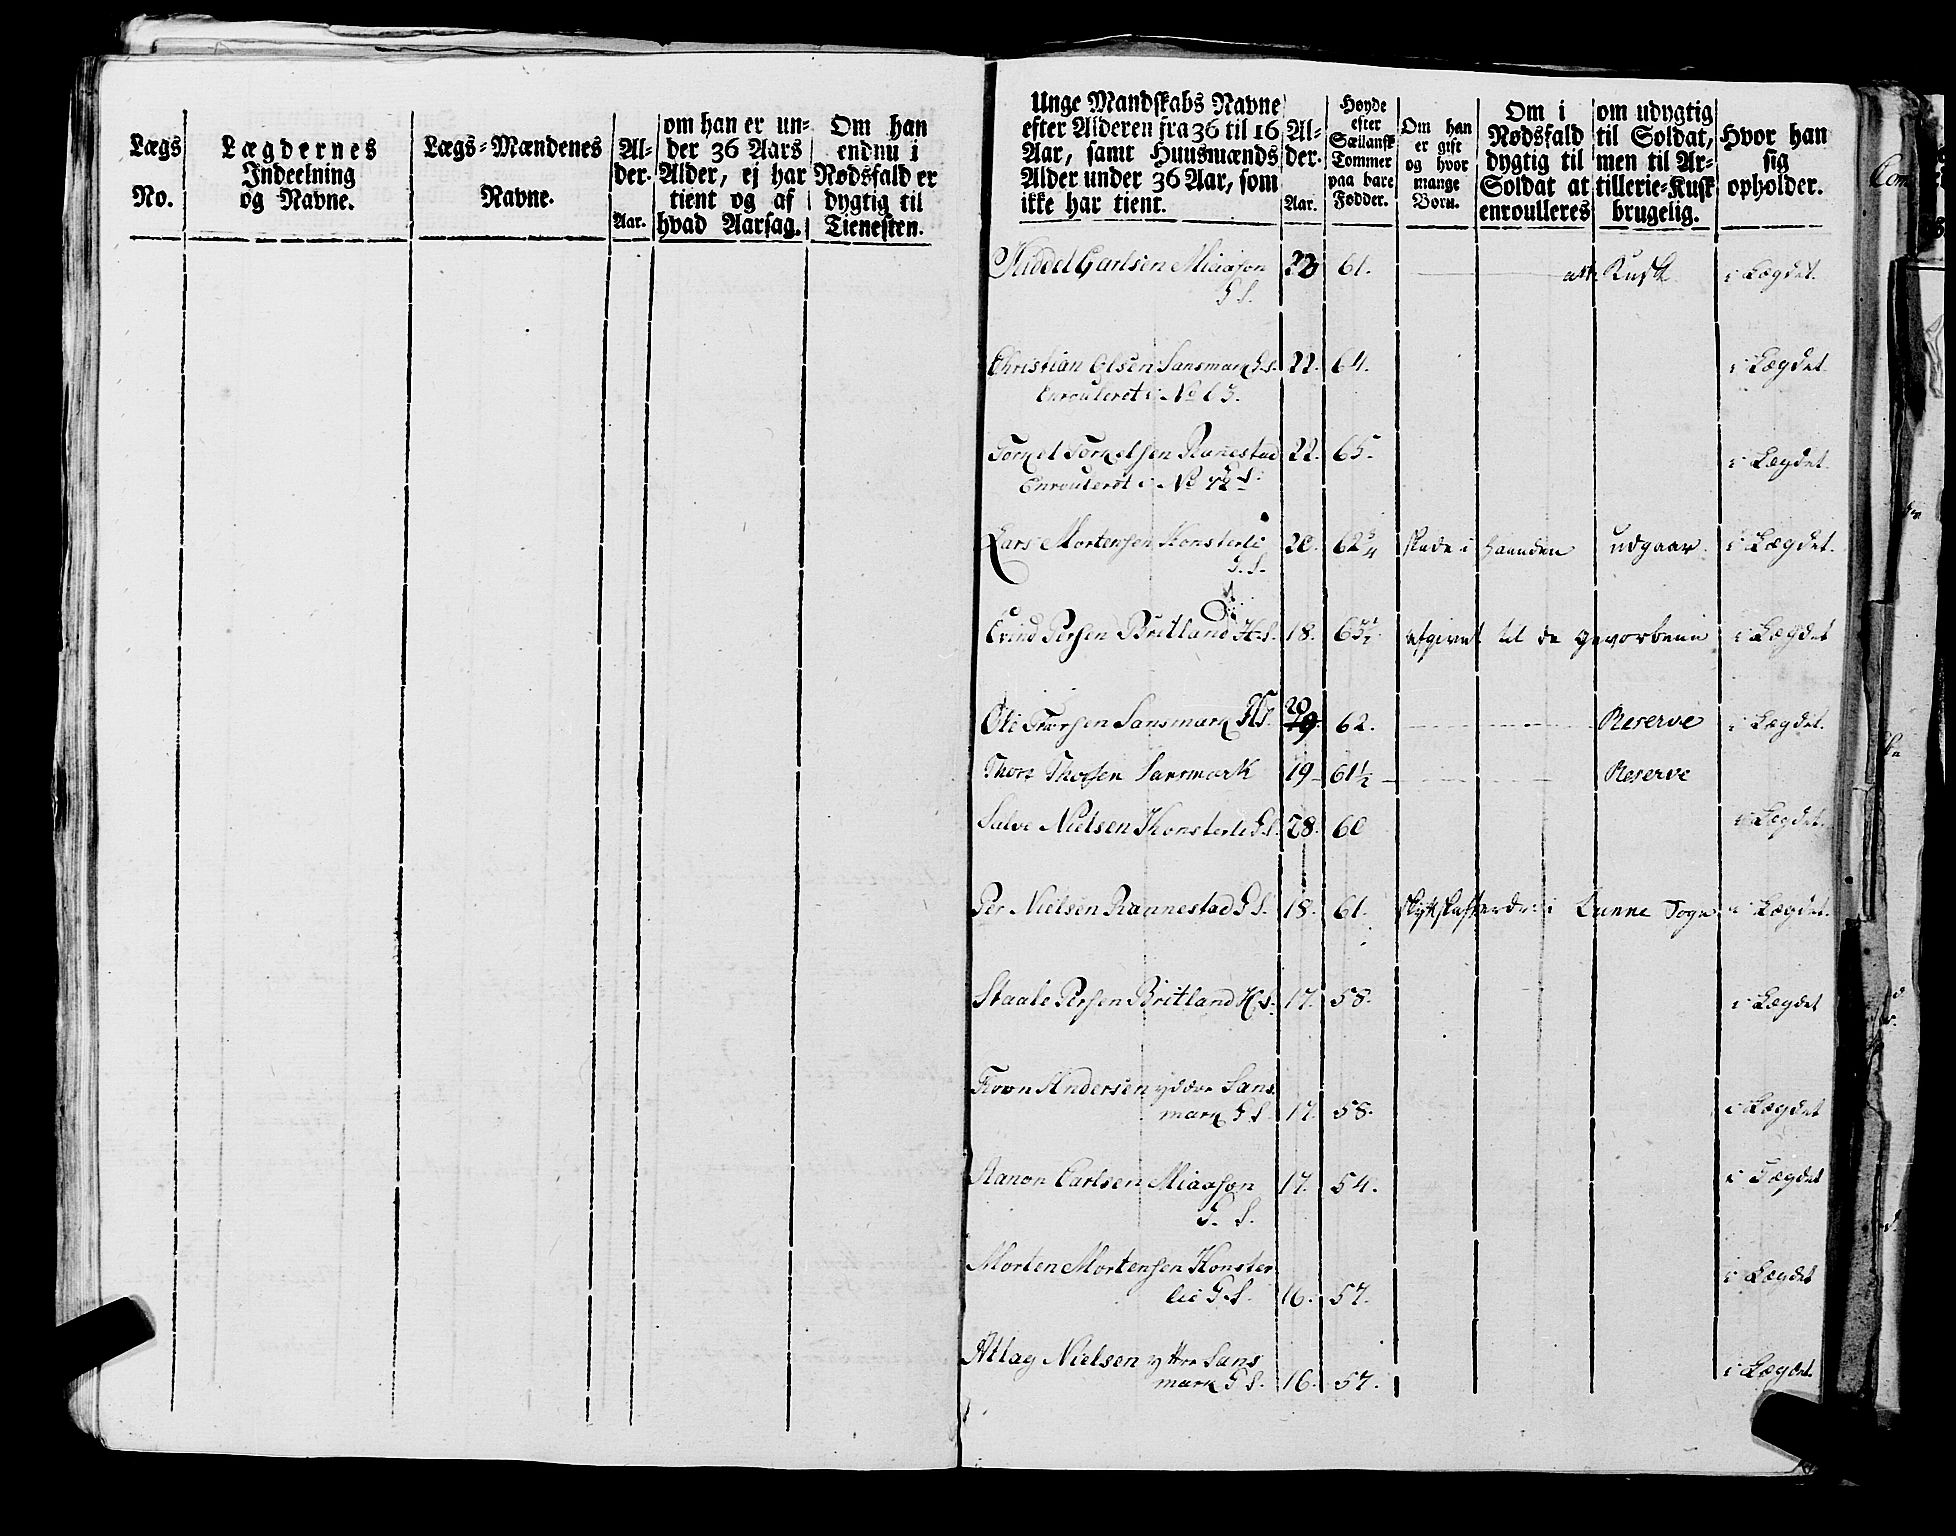 Lægs No.
Lægdernes Indeelning og Navne.
Lægs-Mændenes Navne.
Alder. Aar.
om han er under 36 Aars Alder, ej har tient og af hvad Aarsag.
Om han endnu i Nødsfald er dygtig til Tienesten.
Unge Mandskabs Navne efter Alderen fra 36 til 16 Aar, samt Huusmænds Alder under 36 Aar, som ikke har tient.
Alder. Aar.
Høyde efter Sællansk Tommer paa bare Fødder.
Om han er gift og hvor mange Børn.
Om i Nødsfald dygtig til Soldat at enroulleres
om udygtig til Soldat, men til Artillerie-Kusk brugelig.
Hvor han sig opholder.
Kiddel Carlsen Miaason 61. Kusk i Lægdet.
G S.
Christian Olsen Sansmark G.S. 22. 64. i Lægdet.
Enrouleret i No
Torkel Torkelsen Ranestad 22. 65. i Lægdet.
Enrouleret i No
Lars Mortensen Honsterlie 20. 62 3/4 skade i haanden udgaar. i Lægdet.
G.S.
Evind Persen Britland H.S. 18. afgivet til de gevorbene i Lægdet
20
Ole Tharsen Sansmark 19 62. Reserve i Lægdet.
Thore Thorsen Sansmark 19 61 1/2 Reserve
Salve Nielsen Honsterlie G.S. 28. 60 i Lægdet.
Per Nielsen Rannestad G S. 18. 61. i Lunne Sogn i Lægdet.
Staale Persen Britland H.S. 17. 58. i Lægdet
Andersen ydere Sans
mark G S. 17. 58. i Lægdet
Aanon Carlsen Miaason 17. 54. i Lægdet
G. S.
Morten Mortensen Honster
lie G.S. 16. 57. i Lægdet
Atlag Nielsen yttre Sans
mark G S. 16. 57. i Lægdet.